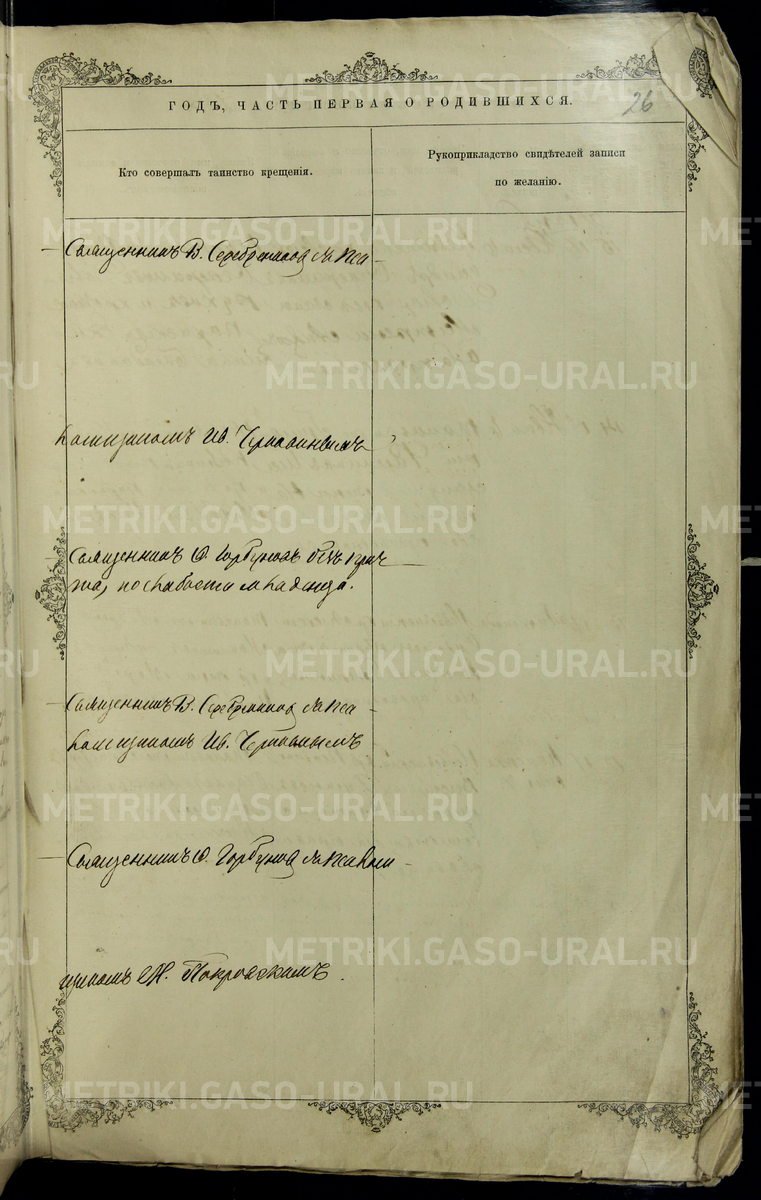 ГОДЪ, ЧАСТЬ ПЕРВАЯ О РОДИВШИХСЯ.
26
Кто совершалъ таинство крещенія.
Рукоприкладство свидѣтелей записи
по желанію.
Священникъ В. Серебренников съ Пса-
ломщикомъ Ив.
Священникъ Ѳ. Горбуновъ безъ прич-
та, по слабости младенца.
Священникъ В. Серебренников съ Пса-
ломщикомъ Ив.
Священникъ Ѳ. Горбунов съ Псалом-
щикомъ Покровскимъ.
METRIKI.GASO-URAL.RU